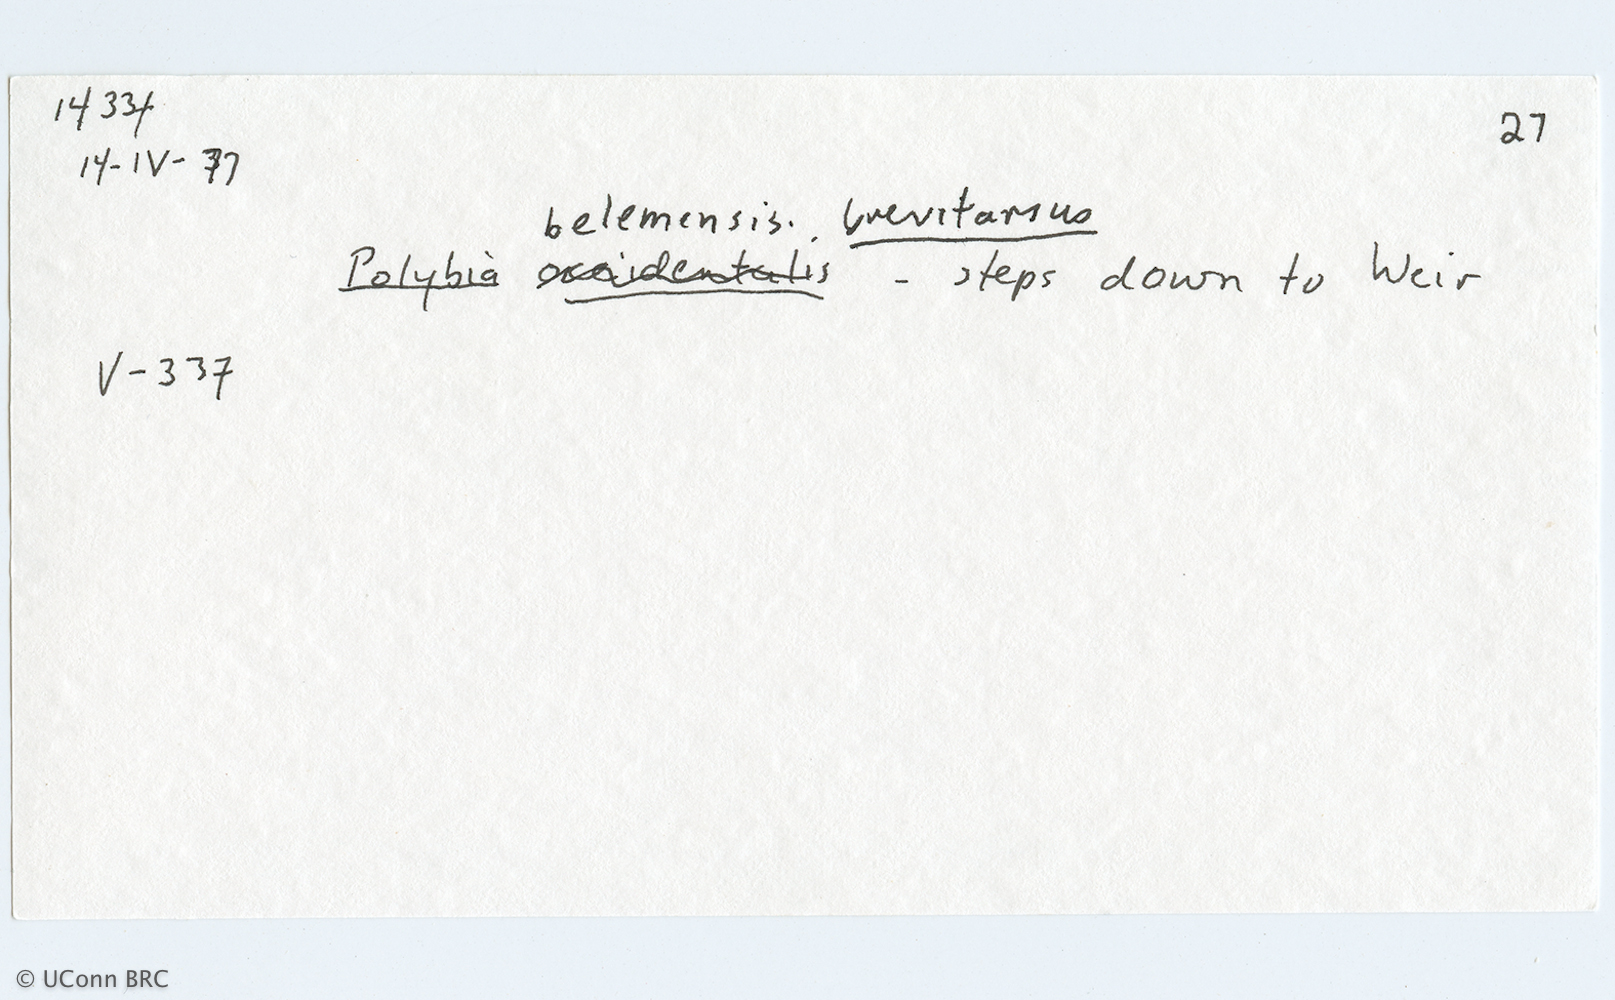 14334
27
14-IV-77
belemensis. brevitarsus
Polybia occidentalis - steps down to Weir
V-337
© UConn BRC